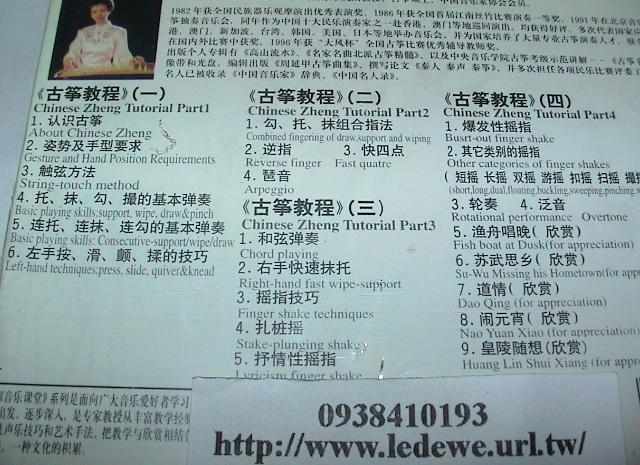 1982年获全国民族器乐观摩演出优秀表演奖。1986年获全国首届江南丝竹比赛演奏一等奖。1991年在北京
筝独奏音乐会，同年作为中国十大民乐演奏家之一赴香港、澳门等地巡回演出，均获得好评。多次代表国家
港、澳门、新加坡、台湾、韩国、美国、日本等地举办音乐会，并为国家培养了大量专业古筝演奏人才，
在国内外比赛中获奖。1996年获“大凤杯”全国古筝比赛优秀辅导教师奖。
出版个人专辑《高山流水》、《名家名曲北派古筝精髓》，以及中央音乐学院古筝考级示范讲解
像带和光盘，编辑出版《周延甲古筝曲集》，撰写论文《秦人 秦声 秦筝》，并多次担任各项民乐比赛评委
名人已被收录《中国音乐家》辞典，《中国名人录》。
《古筝教程》(一)
Chinese Zheng Tutorial Part1
1. 认识古筝
About Chinese Zheng
2. 姿势及手型要求
Gesture and Hand Position Requirements
3. 触弦方法
String-touch method
4. 托、抹、勾、撮的基本弹奏
Basic playing skills:support, wipe, draw&pinch
5. 连托、连抹、连勾的基本弹奏
Basic playing skills: Consecutive-support/wipe/draw
6. 左手按、滑、颤、揉的技巧
Left-hand techniques:press, slide, quiver&knead
《古筝教程》(二)
Chinese Zheng Tutorial Part2
1. 勾、托、抹组合指法
Combined fingering of draw,support and wiping
2. 逆指 3. 快四点
Reverse finger Fast quatre
4. 琶音
Arpeggio
《古筝教程》(三)
Chinese Zheng Tutorial Part3
1. 和弦弹奏
Chord playing
2. 右手快速抹托
Right-hand fast wipe-support
3. 摇指技巧
Finger shake techniques
4. 扎桩摇
Stake-plunging shake
5. 抒情性摇指
Lyricism finger shake
《古筝教程》(四)
Chinese Zheng Tutorial Part4
1. 爆发性摇指
Busrt-out finger shake
2. 其它类别的摇指
Other categories of finger shakes
( 短摇 长摇 双摇 游摇 扣摇 扫摇 撮
(short,long,dual,floating,buckling,sweeping,pinching
3. 轮奏 4. 泛音
Rotational performance Overtone
5. 渔舟唱晚( 欣赏)
Fish boat at Dusk(for appreciation)
6. 苏武思乡( 欣赏)
Su-Wu Missing his Hometown(for ap
7. 道情( 欣赏)
Dao Qing (for appreciation)
8. 闹元宵( 欣赏)
Nao Yuan Xiao (for appreciation)
9. 皇陵随想(欣赏)
Huang Lin Shui Xiang (for appre
《音乐课堂》系列是面向广大音乐爱好者学习
出发，逐步深入，是专家教授从丰富教学经
及声乐技巧和艺术手法，把教学与欣赏相结合
、一种文化的积累。
0938410193
http://www.ledewe.url.tw/